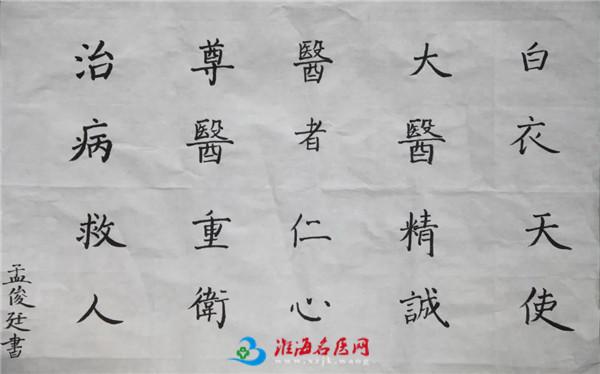 白衣天使
大醫精誠
醫者仁心
尊醫重衛
治病救人
孟俊廷書
淮海名医网
www.xzjk.wang